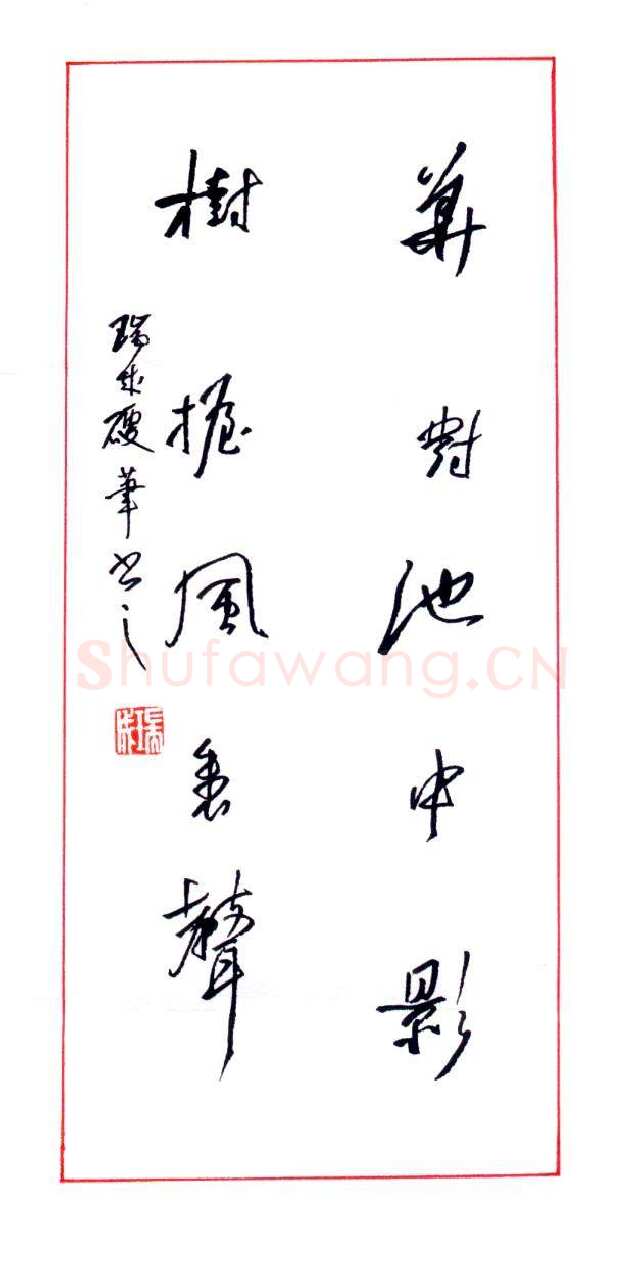 華對池中影
樹搖風裏聲
瑞成硬筆书之
瑞成
Shufawang.CN